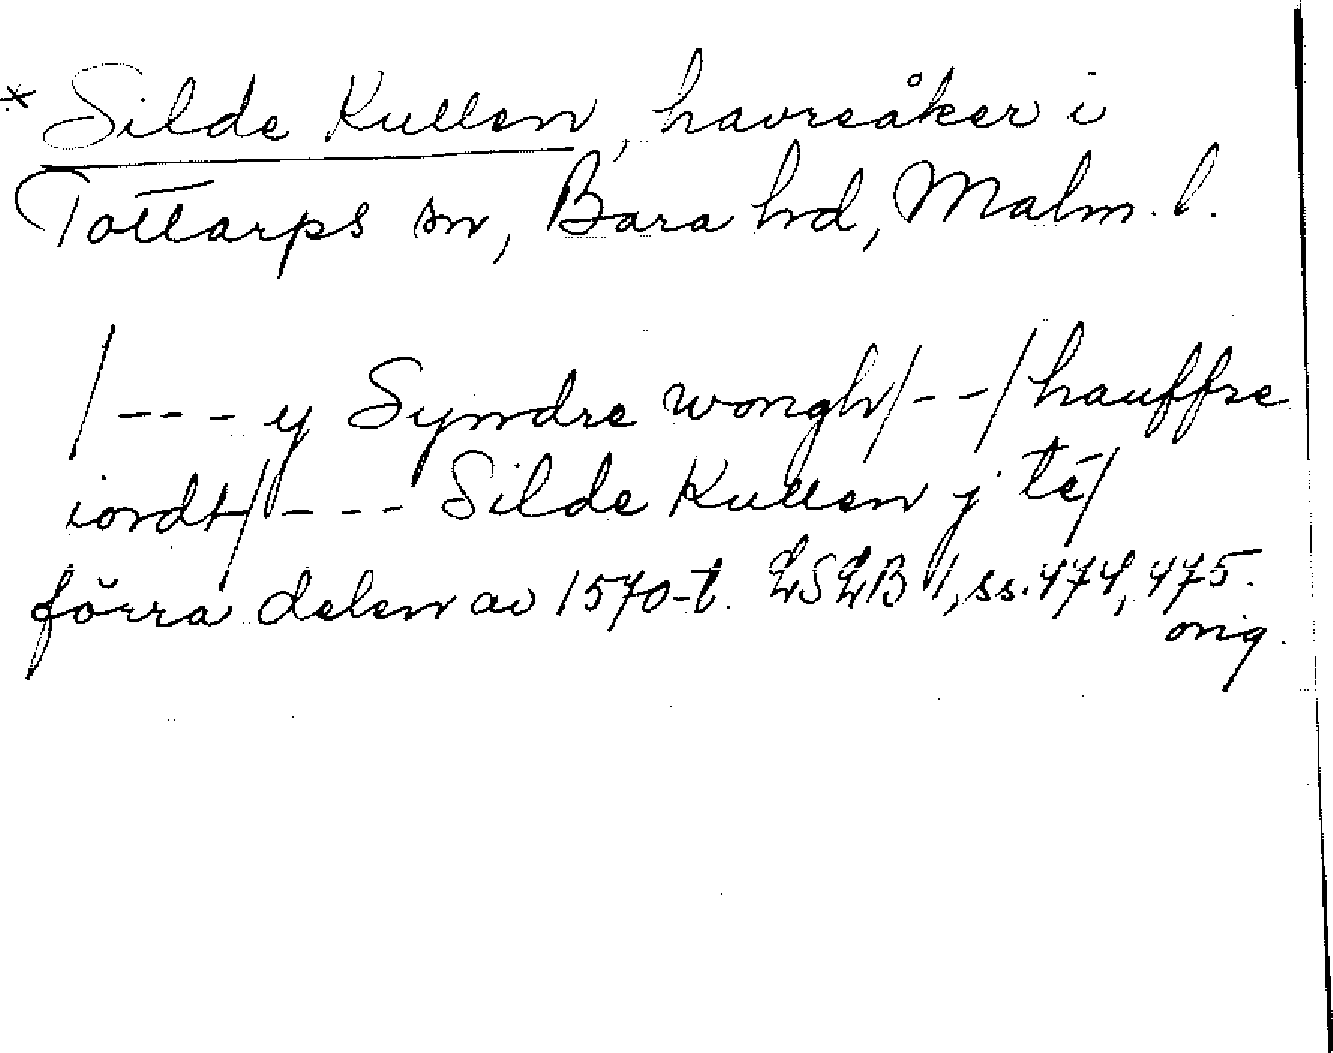 * Silde Kullen, havreåker i
Tottarps sn, Bara hd, Malm. l.
/--- y Syndre wongh/--/hauffre
iordt/--- Silde Kullen j té/
förra delen av 1570-t. LSLB 1, ss. 474, 475.
orig.